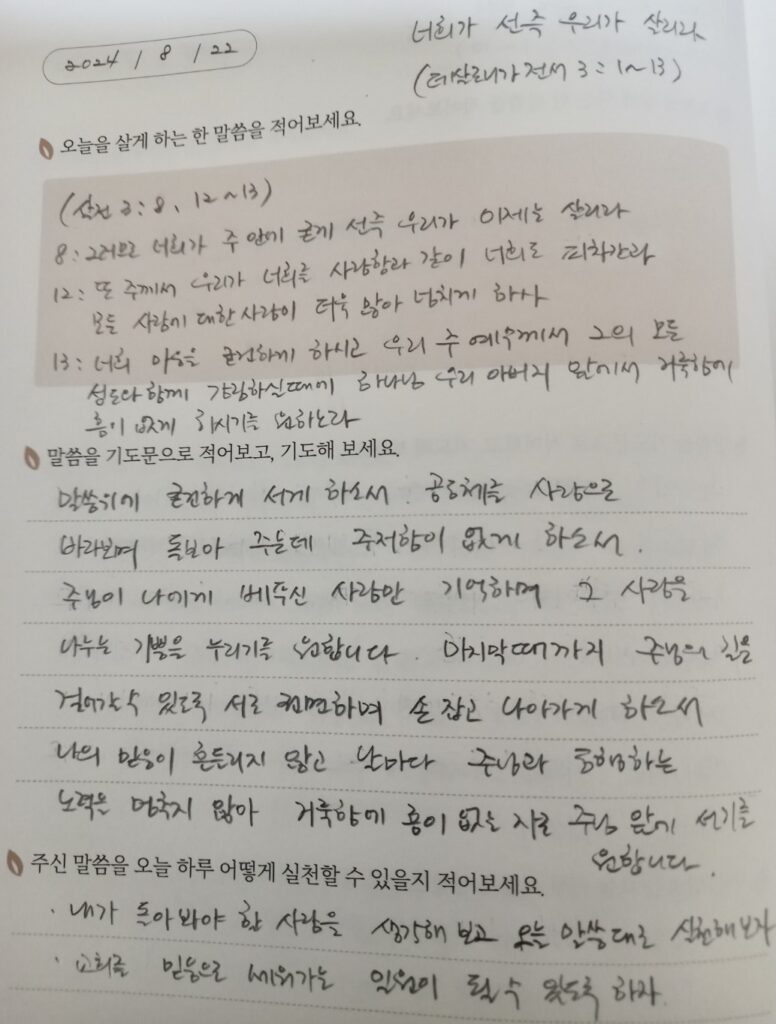 2024 / 8 / 22
너희가 선즉 우리가 살리라
(데살로니가전서 3:1~13)
오늘을 살게 하는 한 말씀을 적어보세요.
(살전 3:8, 12~13)
8: 그러므로 너희가 주 안에 굳게 선즉 우리가 이제는 살리라
12: 또 주께서 우리가 너희를 사랑함과 같이 너희도 피차간과
모든 사람에 대한 사랑이 더욱 많아 넘치게 하사
13: 너희 마음을 굳건하게 하시고 우리 주 예수께서 그의 모든
성도와 함께 강림하실때에 하나님 우리 아버지 앞에서 거룩함에
흠이 없게 하시기를 원하노라
말씀을 기도문으로 적어보고, 기도해 보세요.
말씀위에 굳건하게 서게 하소서. 공동체를 사랑으로
바라보며 돌보아 주는데 주저함이 없게 하소서.
주님이 나에게 베푸신 사랑만 기억하며 그 사랑을
나누는 기쁨을 누리기를 원합니다. 마지막때까지 주님의 길을
걸어갈수 있도록 서로 권면하며 손 잡고 나아가게 하소서
나의 믿음이 흔들리지 않고 날마다 주님과 동행하는
노력은 멈추지 않아 거룩함에 흠이 없는 자로 주님 앞에 서기를
원합니다.
주신 말씀을 오늘 하루 어떻게 실천할 수 있을지 적어보세요.
· 내가 돌아봐야 할 사람을 생각해 보고 오늘 말씀대로 실천해보자
· 교회를 믿음으로 세워가는 일원이 될 수 있도록 하자.